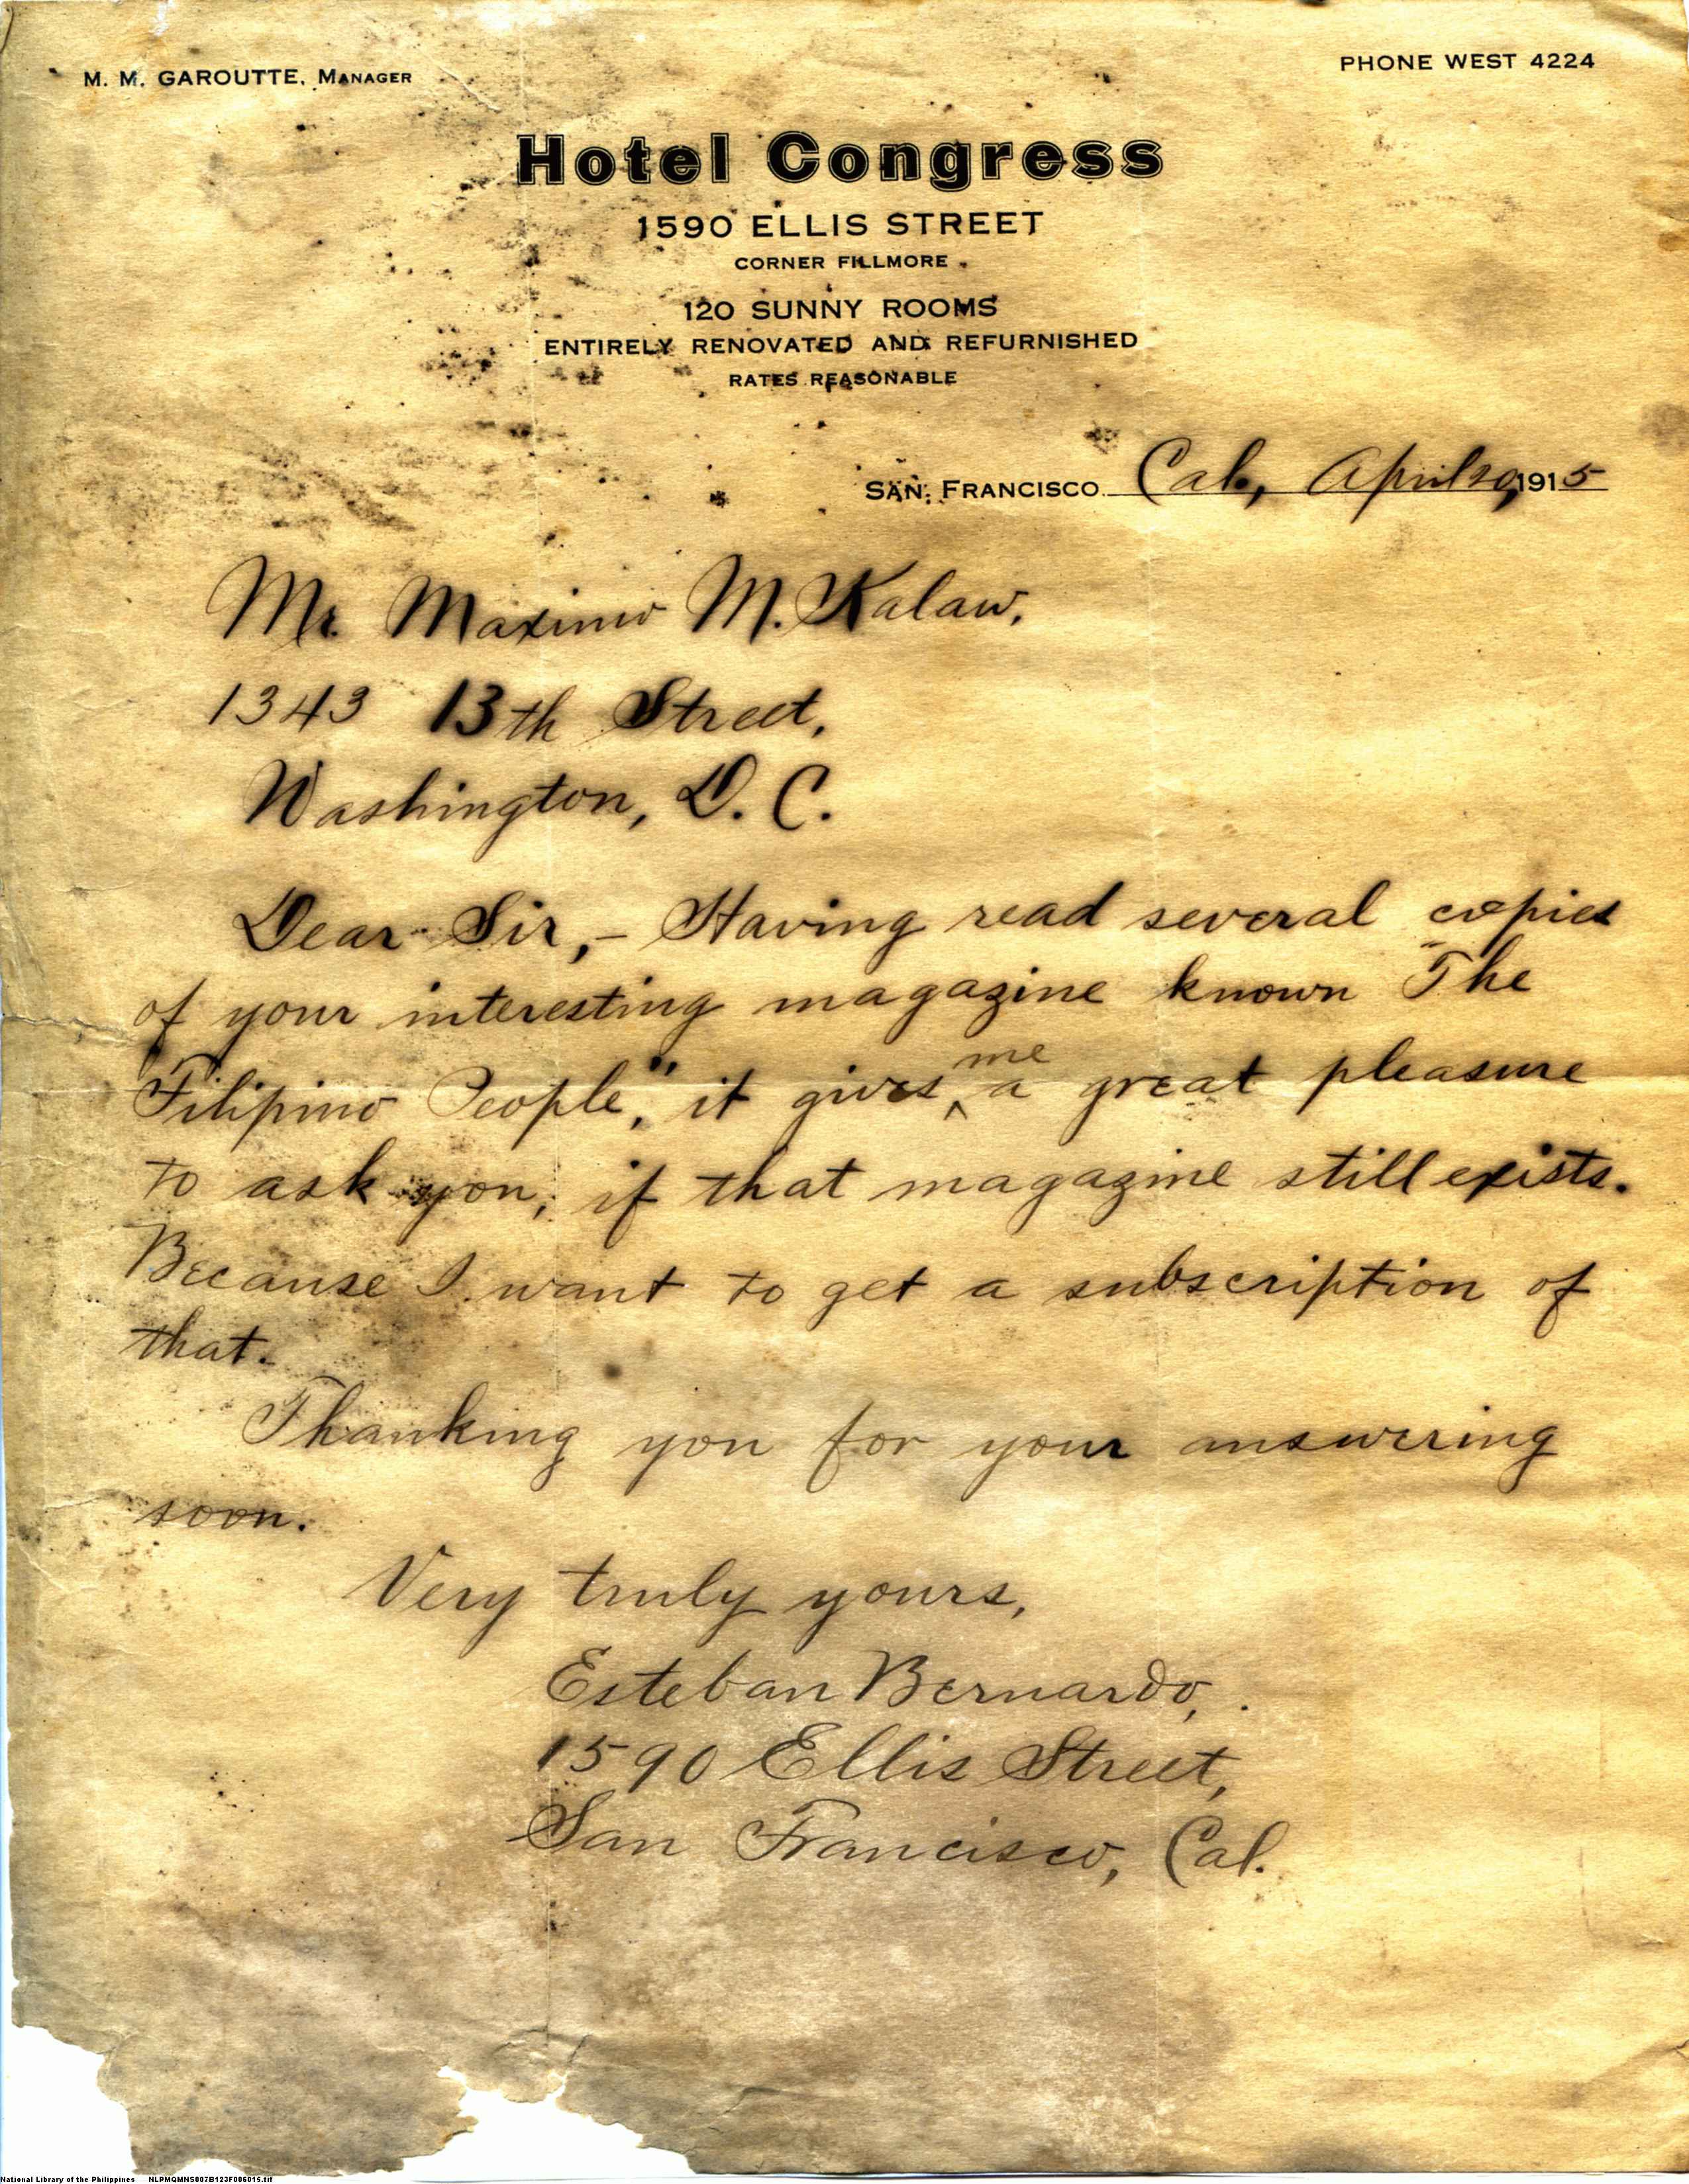 M. M. GAROUTTE, MANAGER
PHONE WEST 4224
Hotel Congress
1590 ELLIS STREET
CORNER FILLMORE
120 SUNNY ROOMS
ENTIRELY RENOVATED AND REFURNISHED
RATES REASONABLE
SAN FRANCISCO Cal., April 20, 1915
Mr. Maximo M. Kalaw,
1343 13th Street,
Washington, D. C.
Dear Sir,- Having read several copies
of your interesting magazine known "The
Filipino People," it gives me a great pleasure
to ask you, if that magazine still exists.
Because I want to get a subscription of
that.
Thanking you for your answering
soon.
Very truly yours,
Esteban Bernardo,
1590 Ellis Street,
San Francisco, Cal.
National Library of the Philippines NLPMQMNS007B123F006015.tif